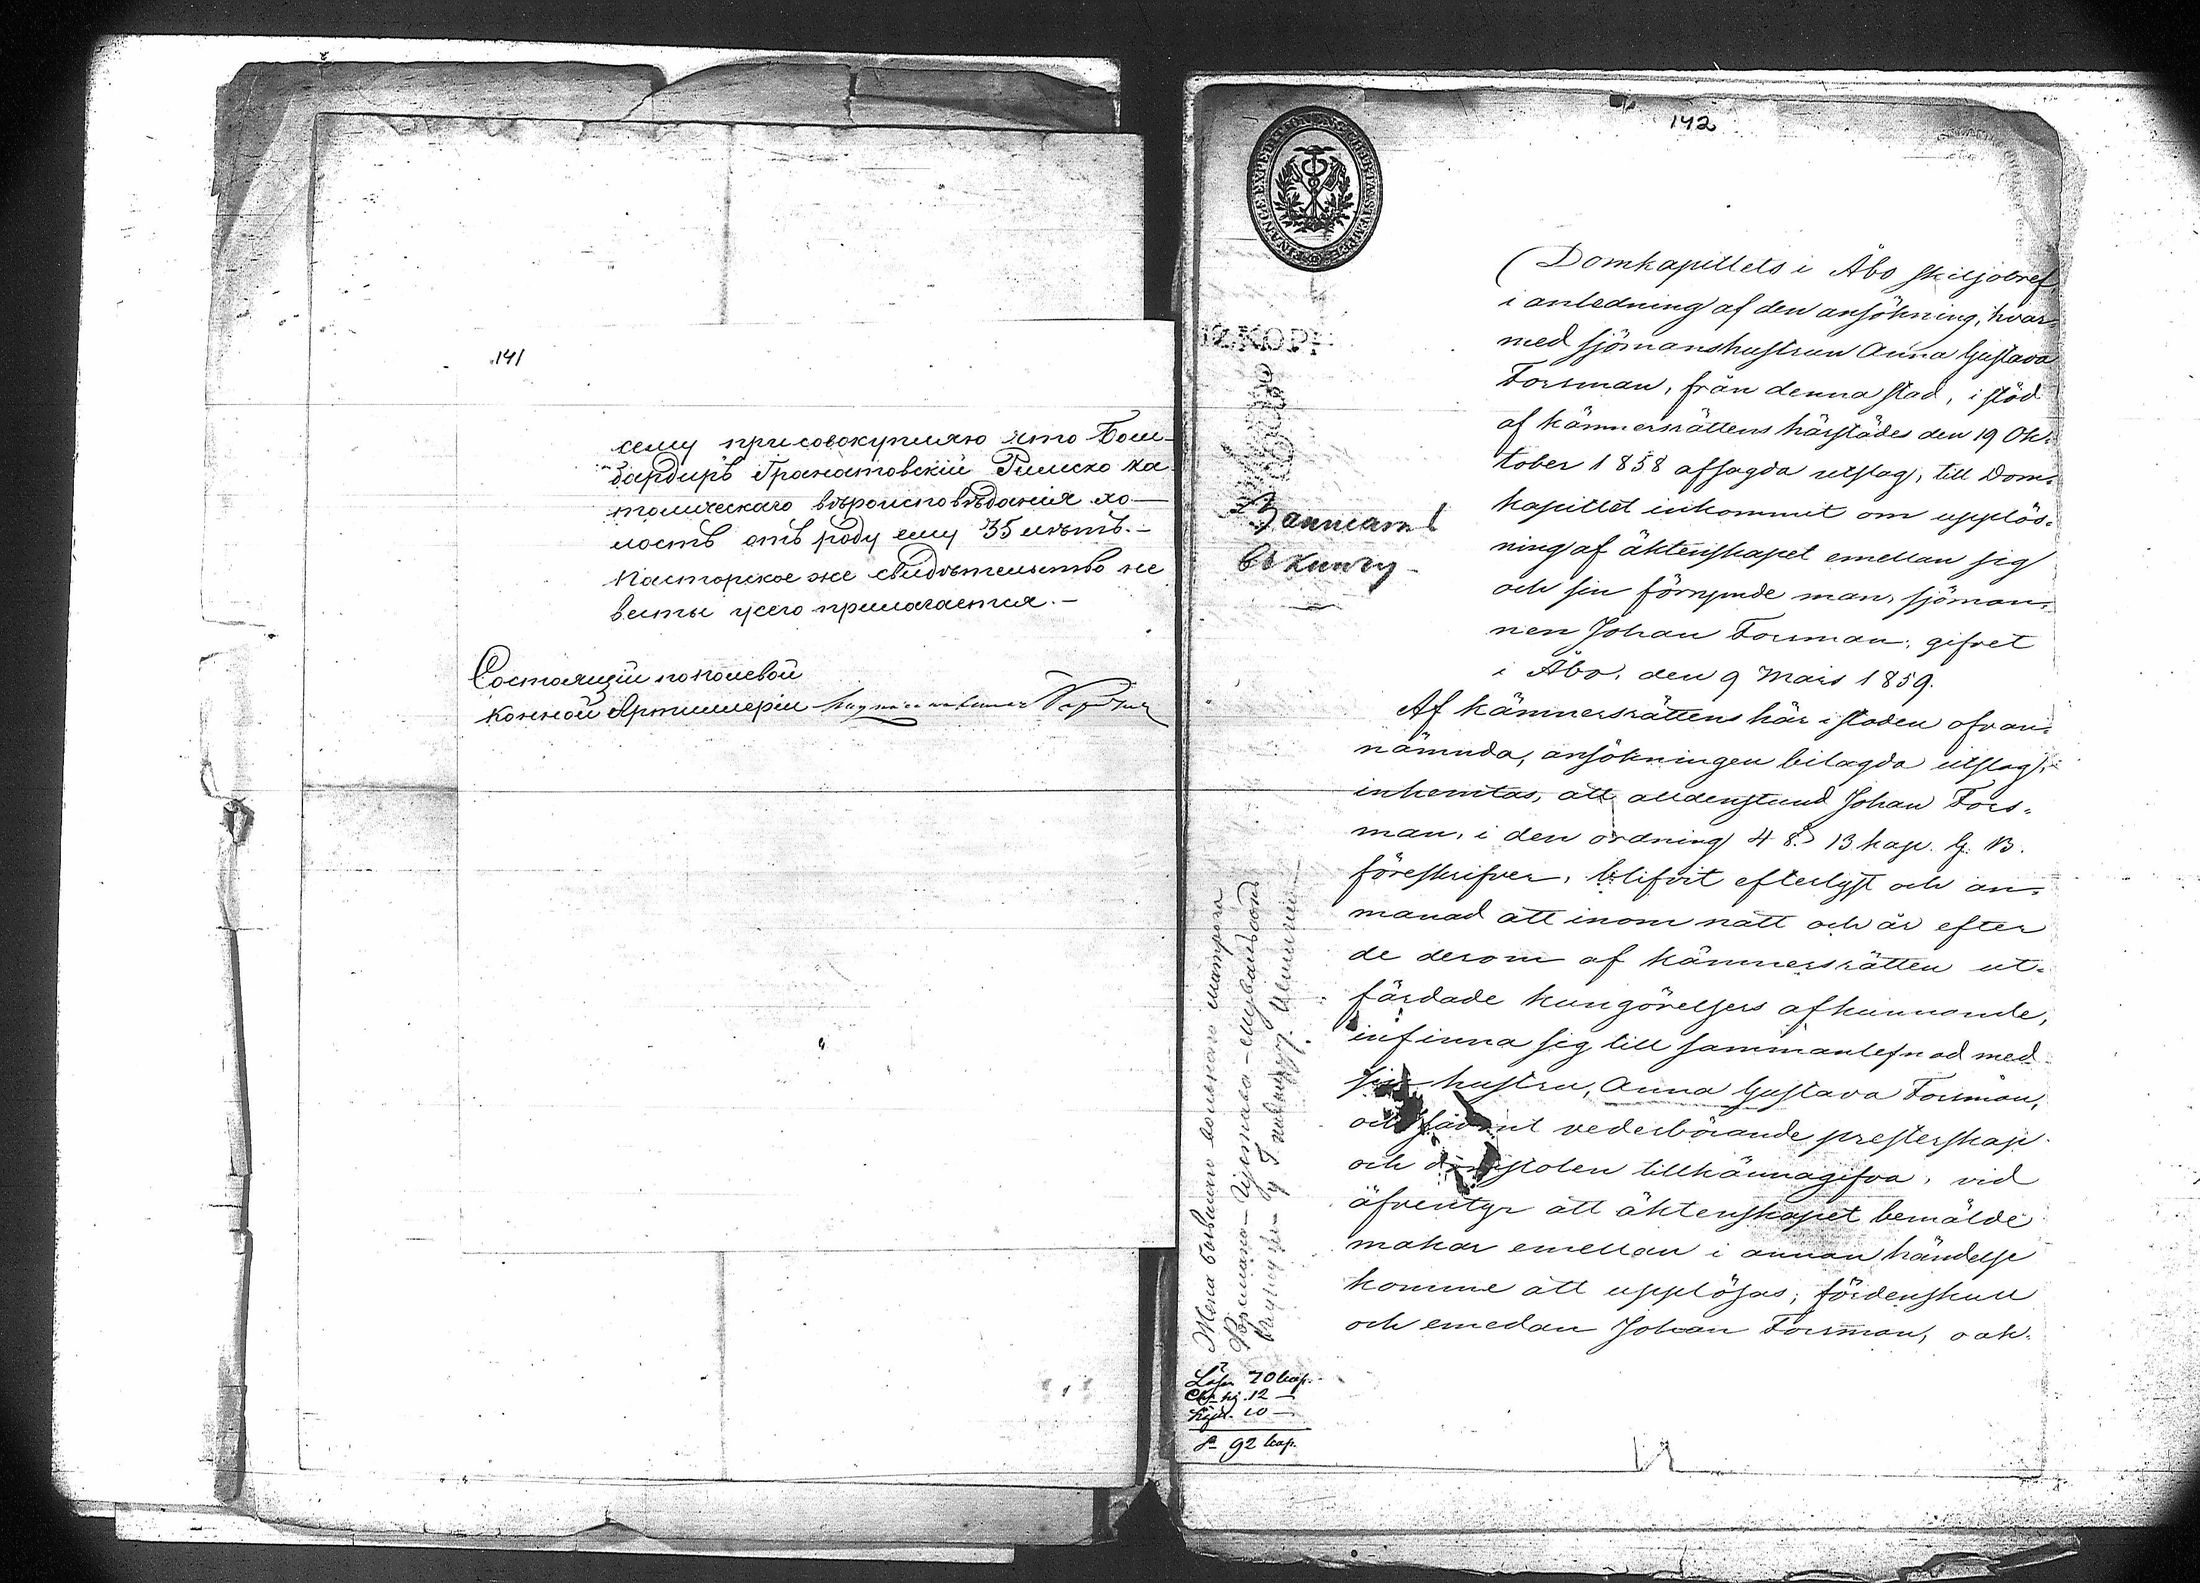 141
сему присовокупляю что Бом-
бардиръ Гранатовскій Римско ка
толическаго вѣроисповѣданія хо-
лостъ отъ роду ему 35 лѣтъ.-
Пасторское же свидѣтельство не
весты усего прилагается.-
Состоящій по полевой
конной Артиллеріи
142
12 KOP
Domkapitlets i Åbo skiljobref,
i anledning af den ansökning, hvar-
med sjömanshustrun Anna Gustava
Forsman, från denna stad, i stöd
af kämnersrättens härstädes den 19 Ok-
tober 1858 afsagda utslag, till Dom-
kapitlet inkommit om upplös-
ning af äktenskapet emellan sig
och sin förrymde man, sjöman-
nen Johan Forsman; gifvet
i Åbo, den 9 Mars 1859.
Af kämnersrättens här i staden ofvan-
nämnda, ansökningen bilagda utslag,
inhemtas, att alldenstund Johan Fors-
man, i den ordning 4 §. 13 kap. G. B.
föreskrifver, blifvit efterlyst och an-
manad att inom natt och år efter
de derom af kämnersrätten ut-
färdade kungörelsers afkunnande,
infinna sig till sammanlefnad med
sin hustru, Anna Gustava Forsman,
och sådant vederbörande presterskap
och domstolen tillkännagifva, vid
äfventyr att äktenskapet bemälde
makar emellan i annan händelse
komme att upplösas; fördenskull
och emedan Johan Forsman, oak-
Жена бывшаго вольнаго матроса
Форсмана - Густава
Lösn 70 kop.
12 -
10 -
Sa 92 kop.